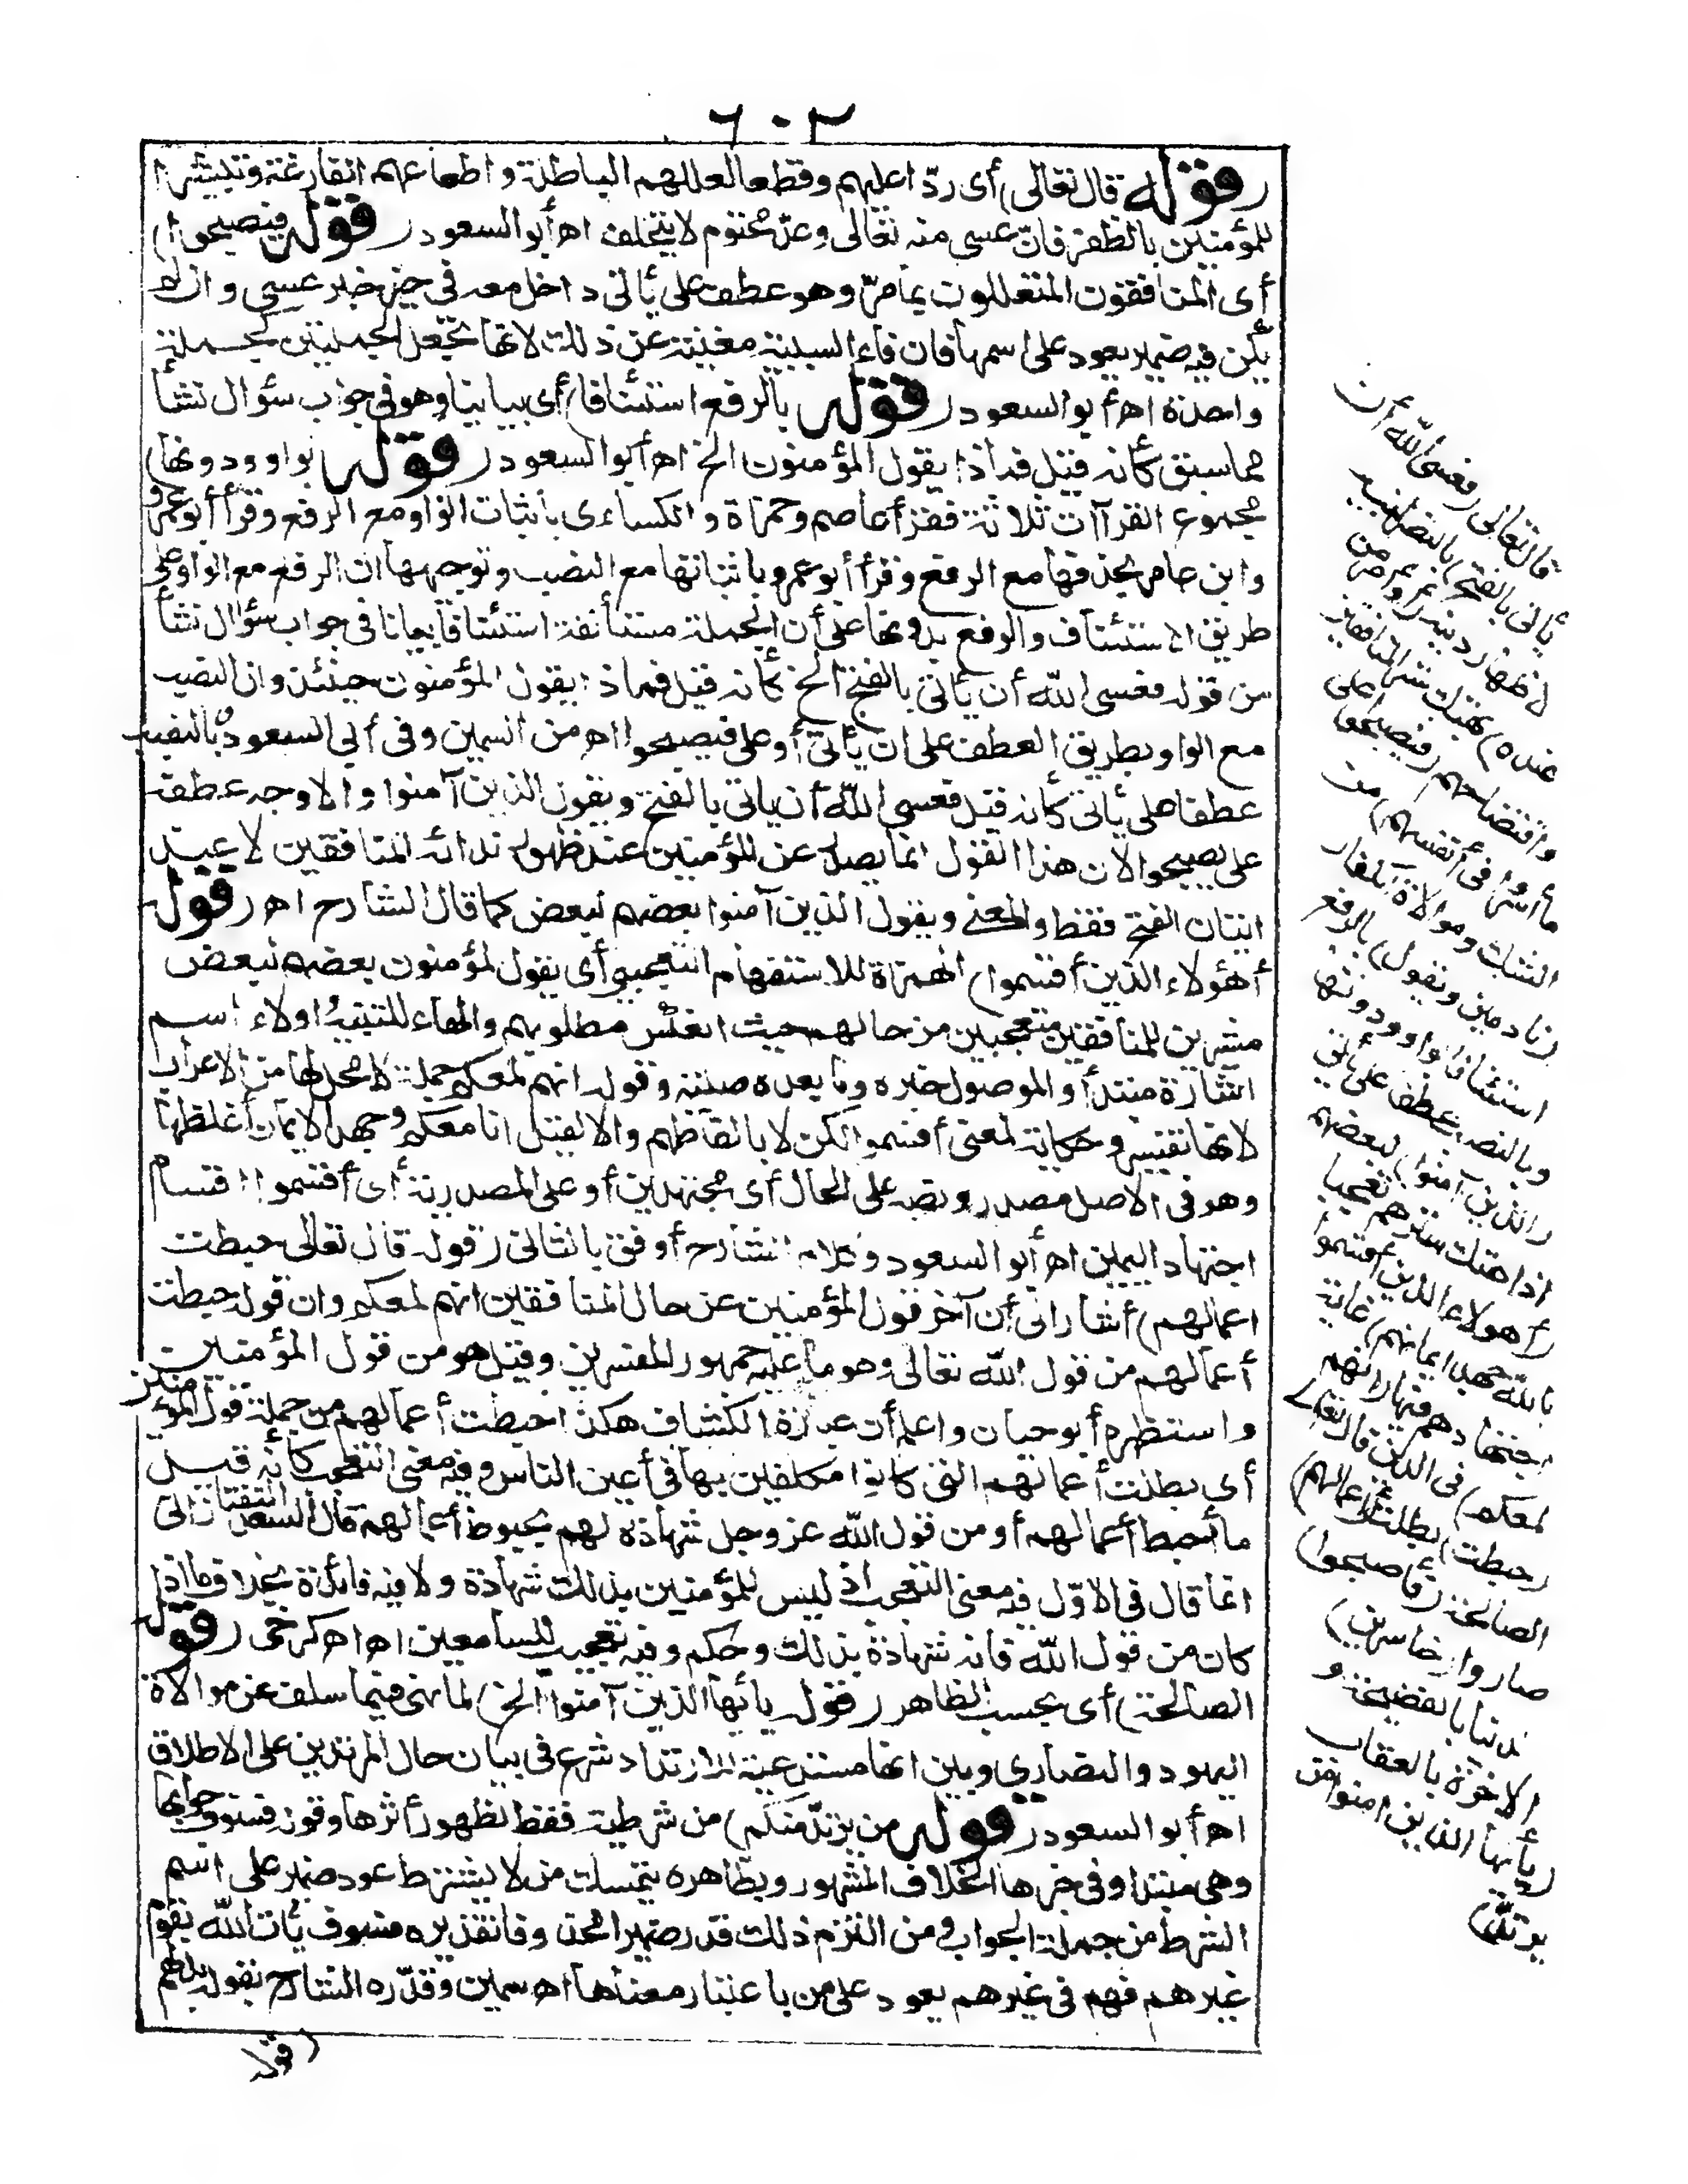 ٦٠٢
(قوله قال تعالى) أى ردّا عليهم وقطعا لعللهم الباطلة واطماعهم الفارغة وتبشيرا
للمؤمنين بالظفر فانّ عسى منه تعالى وعد محتوم لا يتخلف اه أبو السعود (قوله فيصبحوا)
أى المنافقون المتعللون بما مرّ وهو عطف على يأتى داخل معه فى حيز خبر عسى وان لم
يكن فيه ضمير يعود على اسمها فان فاء السببية مغنية عن ذلك لانها تجعل الجملتين كجملة
واحدة اه أبو السعود (قوله بالرفع استئنافا) أى بيانيا وهو فى جواب سؤال نشأ
مما سبق كأنه قيل فماذا يقول المؤمنون الخ اه أبو السعود (قوله بواو ودونها)
مجموع القرآآت ثلاثة فقرأ عاصم وحمزة والكساءى باثبات الواو مع الرفع وقرأ أبو عمرو
وابن عامر بحذفها مع الرفع وقرأ أبو عمرو باثباتها مع النصب وتوجيهها ان الرفع مع الواو على
طريق الاستئناف والرفع بدونها على أن الجملة مستأنفة استئنافا بيانا فى جواب سؤال نشأ
من قوله فعسى الله أن يأتى بالفتح الخ كأنه قيل فماذا يقول المؤمنون حينئذ وان النصب
مع الواو بطريق العطف على ان يأتى أو على فيصبحوا اه من السمين وفى أبى السعود وبالنصب
عطفا على يأتى كأنه قيل فعسى الله أن يأتى بالفتح ويقول الذين آمنوا والاوجه عطفه
على يصبحوا لان هذا القول انما يصدر عن المؤمنين عند ظهور ندامة المنافقين لا عند
اتيان الفتح فقط والمعنى ويقول الذين آمنوا بعضهم لبعض كما قال الشارح اه (قوله
أهؤلاء الذين أقسموا) الهمزة للاستفهام التعجبى أى يقول المؤمنون بعضهم لبعض
مشيرين للمنافقين متعجبين من حالهم حيث انعكس مطلوبهم والهاء للتنبيه اولاء اسم
اشارة مبتدأ والموصول خبره وما بعده صلته وقوله انهم لمعكم جملة لا محل لها من الاعراب
لانها تفسير وحكاية لمعنى أقسموا لكن لا بألفاظهم والا لقيل انا معكم وجهد الايمان أغلظها
وهو فى الاصل مصدر ونصبه على الحال أى مجتهدين أو على المصدرية أى أقسموا اقسام
اجتهاد اليمين اه أبو السعود وكلام الشارح أوفق بالثانى (قوله قال تعالى حبطت
اعمالهم) أشار الى أن آخر قول المؤمنين عن حال المنافقين انهم لمعكم وان قوله حبطت
أعمالهم من قول الله تعالى وهو ما عليه جمهور المفسرين وقيل هو من قول المؤمنين
واستظهره أبو حيان واعلم أن عبارة الكشاف هكذا حبطت أعمالهم من جملة قول المؤمنين
أى بطلت أعمالهم التى كانوا مكلفين بها فى أعين الناس وفيه معنى التعجب كأنه قيل
ما أحبط أعمالهم أو من قول الله عز وجل شهادة لهم بحبوط أعمالهم قال السعد التفتازانى
انما قال فى الاوّل فيه معنى التعجب اذ ليس للمؤمنين بذلك شهادة ولا فيه فائدة بخلاف ما اذا
كان من قول الله فانه شهادة بذلك وحكم وفيه تعجيب للسامعين اه اه كرخى (قوله
الصالحة) أى بحسب الظاهر (قوله يأيها الذين آمنوا الخ) لما نهى فيما سلف عن موالاة
اليهود والنصارى وبين انها مستدعية للارتداد شرع فى بيان حال المرتدين على الاطلاق
اه أبو السعود (قوله من يرتدّ منكم) من شرطية فقط لظهور أثرها وقوله فسوف جوابها
وهى مبتدا وفى خبرها الخلاف المشهور وبظاهره يتمسك من لا يشترط عود ضمير على اسم
الشرط من جملة الجواب ومن التزم ذلك قدر ضميرا محذوفا تقديره فسوف يأت الله بقوم
غيرهم فهم فى غيرهم يعود على من باعتبار معناها اه سمين وقدّره الشارح بقوله بدلهم
(قوله
قال تعالى (فعسى الله أن
يأتى بالفتح) بالنصر لنبيه
لاظهار دينه (أو أمر من
عنده) بهتك ستر المنافقين
وافتضاحهم (فيصبحوا على
ما أسروا فى أنفسهم) من
الشك وموالاة الكفار
(نادمين ويقول) بالرفع
استئنافا بواو ودونها
وبالنصب عطف على يأتى
(الذين آمنوا) لبعضهم
اذا هتك سترهم تعجبا
(أهؤلاء الذين أقسموا
بالله جهد ايمانهم) غاية
اجتهادهم فيها (انهم
لمعكم) فى الدين قال تعالى
(حبطت) بطلت (أعمالهم)
الصالحة (فأصبحوا)
صاروا (خاسرين)
الدنيا بالفضيحة و
الاخرة بالعقاب
(يأيها الذين امنوا من
يرتدّ)